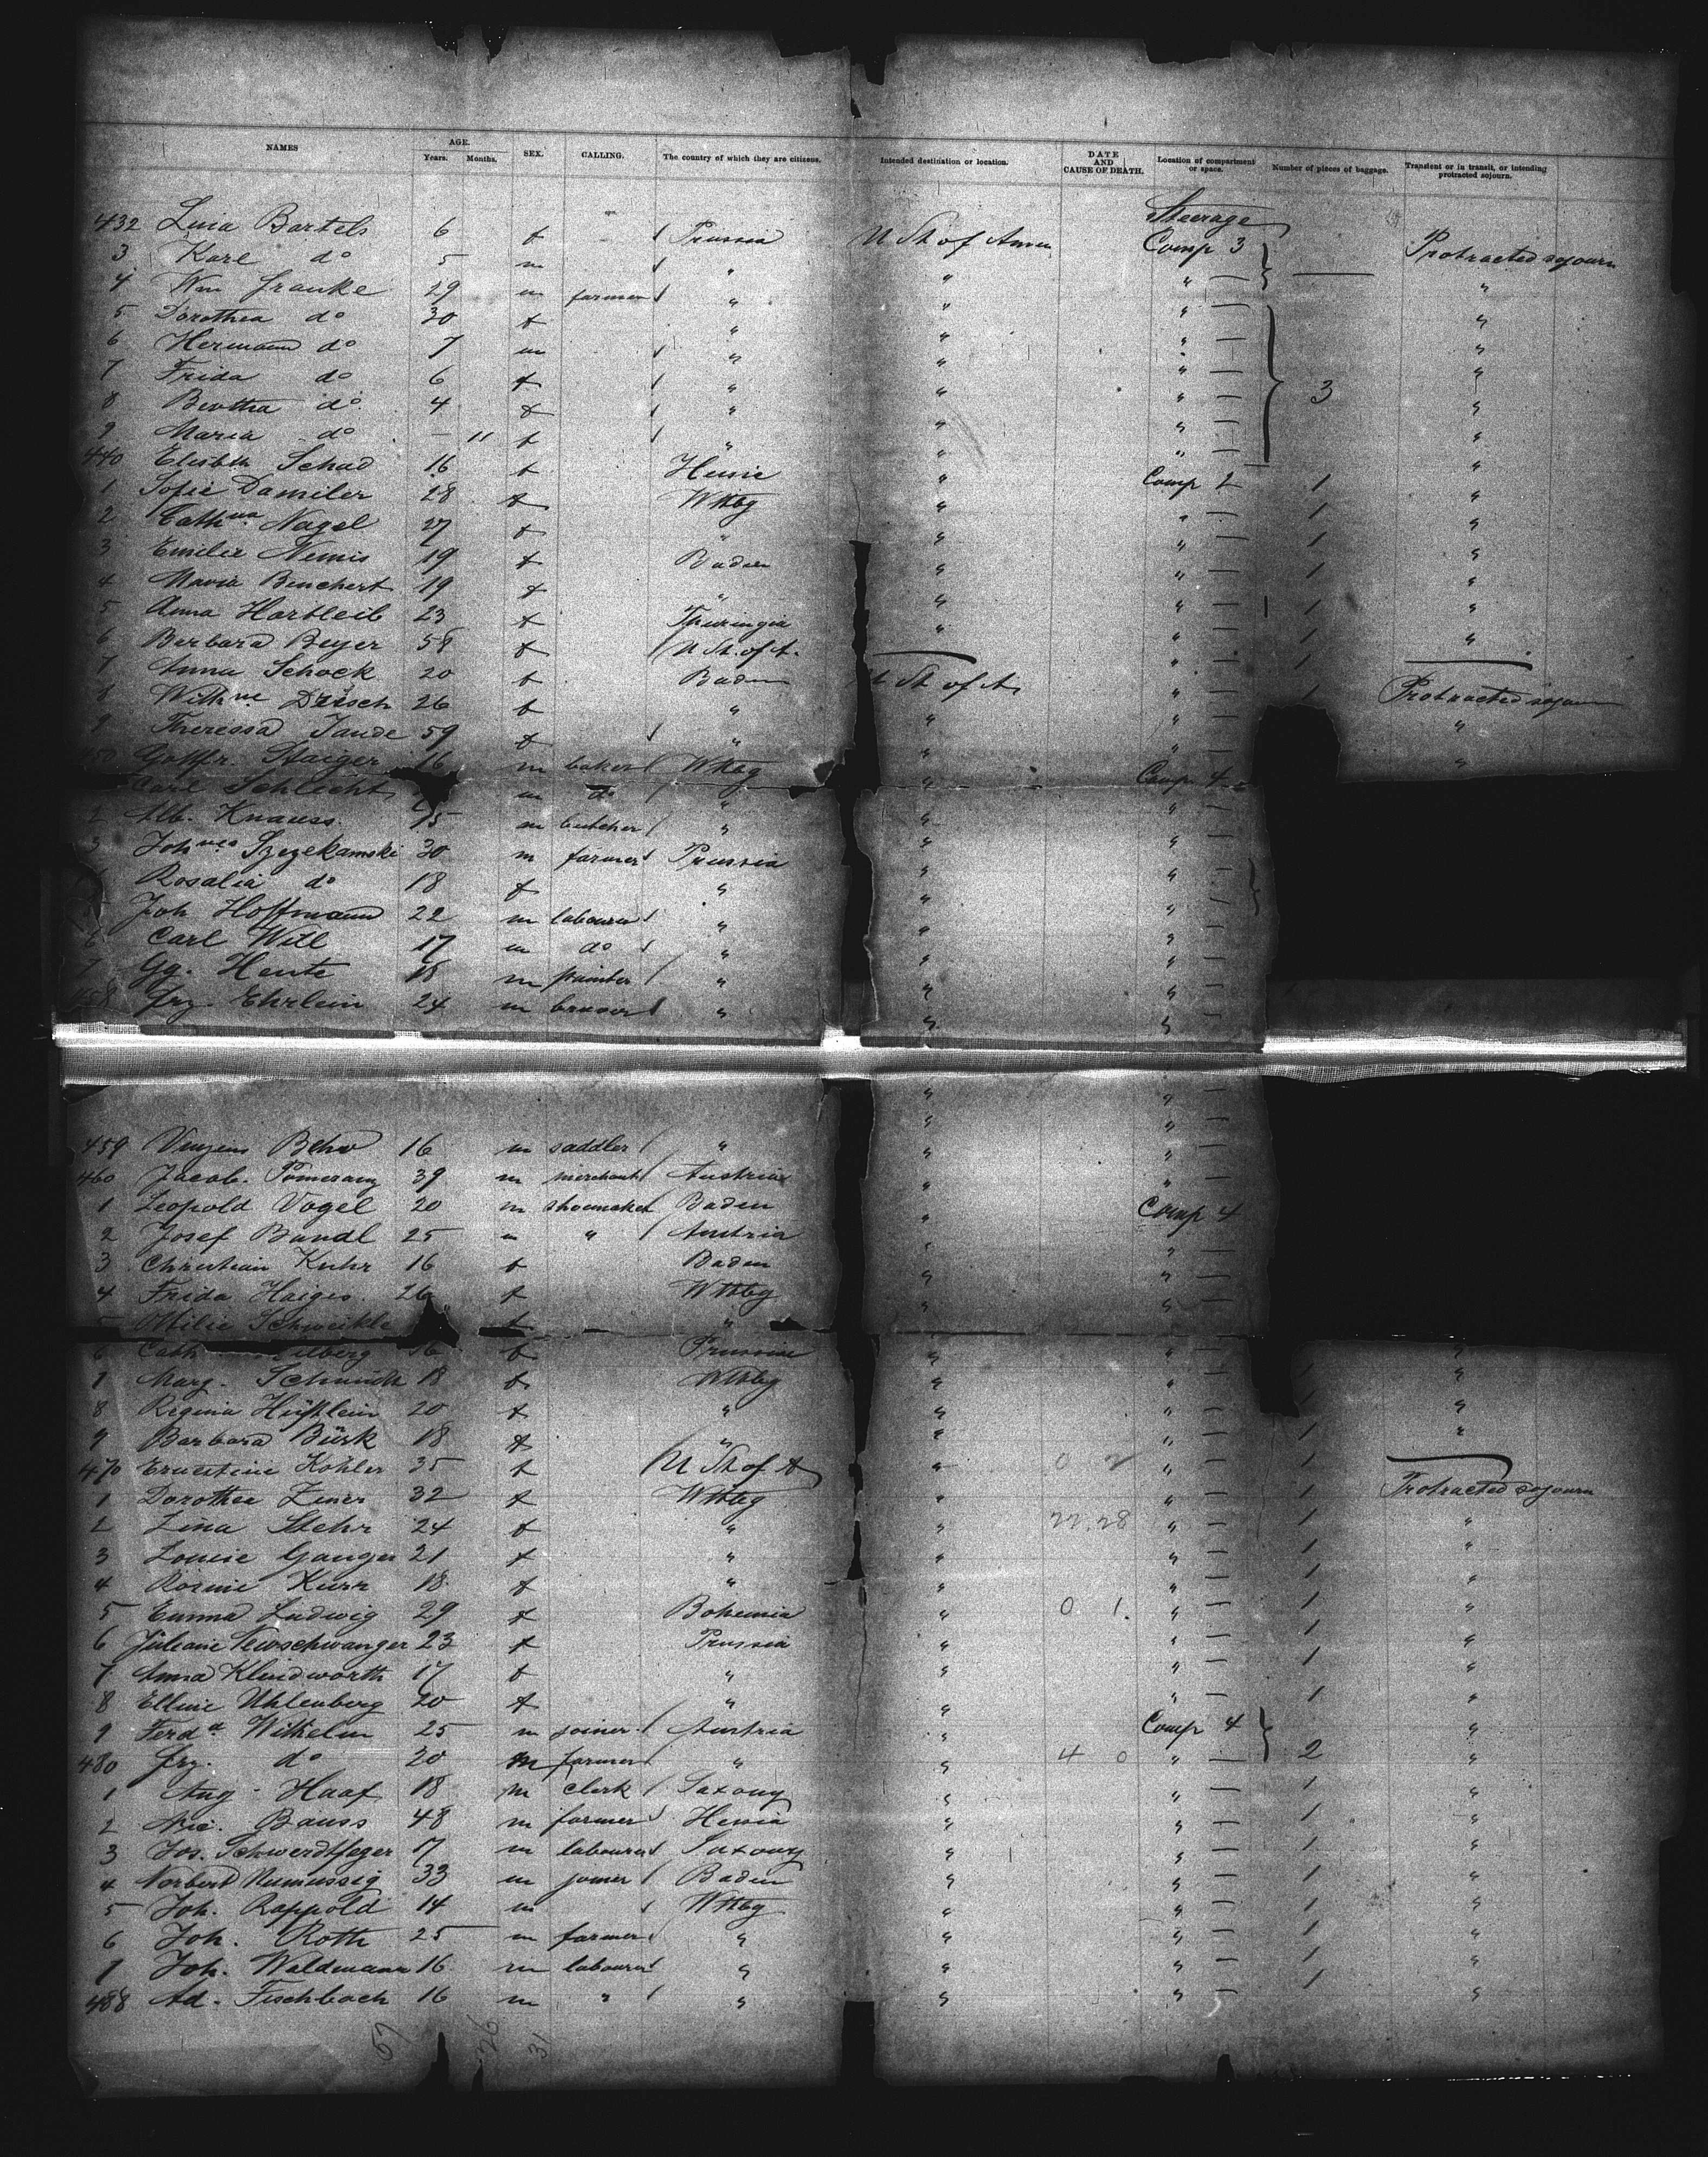 NAMES AGE. Years. Months. SEX. CALLING. The country of which they are citizens. Intended destination or location. DATE AND CAUSE OF DEATH. Location of compartment or space. Number of pieces of baggage. Transient or in transit, or intending protracted sojourn.
Steerage
432 Lina Bartels 6 f / Prussia U St of Amer Comp 3 Protracted sojourn
3 Karl do 5 m / " " " — "
4 Wm Franke 29 m farmer / " " " — "
5 Dorothea do 30 f " " " — "
6 Hermann do 7 m / " " " — "
7 Frida do 6 f / " " " — 3 "
8 Bertha do 4 f / " " " — "
9 Maria do — 11 f / " " " — "
440 Elisbth Schad 16 f Hessie " Comp 2 1 "
1 Sofie Damiler 28 f Wttbg " " — 1 "
2 Cathna Nagel 27 f " " " — 1 "
3 Emilie Nemis 19 f Baden " " — 1 "
4 Maria Benchert 19 f " " " — 1 "
5 Anna Hartleib 23 f Thuringia " " — 1 "
6 Barbara Beyer 58 f ( U St. of A. — " — 1 —
7 Anna Schock 20 f Baden U St of A. " — 1 Protracted sojourn
8 Wilhne Dresch 26 f " " " — "
9 Theressa Jande 59 f / " " " — "
450 Gottfr. Staiger 16 m baker / Wttbg " Comp 4
Carl Schlecht m do / " " " —
2 Alb. Knauss 25 m butcher / " " " —
3 Johnnes Szczekamski 30 m farmer / Prussia " " —
Rosalia do 18 f " " " —
5 Joh Hoffmann 22 m labourer / " " " —
6 Carl Will 17 m do / " " " —
7 Gg. Hente 18 m painter / " " " —
458 Frz. Ehrlein 24 m brewer / " " " —
459 Vinzens Behr 16 m saddler / " " " —
460 Jacob. Pomeranz 39 m merchant / Austria " " —
1 Leopold Vogel 20 m shoemaker Baden " Comp 4
2 Josef Bandl 25 m " / Austria " " —
3 Christian Kuhr 16 f Baden " " —
4 Frida Haiges 26 f Wttbg " " —
5 Ottilie Schweikle f "
6 Cath 16 f Prussia " " — "
7 Marg. Schmidt 18 f Wttbg " " — 1 "
8 Regina Hüftlein 20 f " " " — 1 "
9 Barbara Bürk 18 f " " " — 1 "
470 Ernestine Kohler 35 f ( U St of A " " — 1 —
1 Dorothea Zeiner 32 f Wttbg " " — 1 Protracted sojourn
2 Lina Stehr 24 f " " 22.28 " — 1 "
3 Louise Ganger 21 f " " " — 1 "
4 Rosine Kurr 18 f " " " — 1 "
5 Emma Ludwig 29 f Bohemia " 0 1. " — 1 "
6 Juliane Newschwanger 23 f Prussia " " — 1 "
7 Anna Klindworth 17 f " " " — 1 "
8 Elline Uhlenberg 20 f " " " — 1 "
9 Ferdd Wilhelm 25 m joiner / Austria " Comp 4 "
480 Frz. do 20 m farmer " " 4 0 " — 2 "
1 Aug. Haaf 18 m clerk / Saxony " " — 1 "
2 Nic. Bauss 48 m farmer / Hessia " " — 1 "
3 Jos. Schwerdtfeger 17 m labourer / Saxony " " — 1 "
4 Norbert 33 m joiner / Baden " " — 1 "
5 Joh. Rappold 14 m / Wttbg " " — 1 "
6 Joh. Roth 25 m farmer / " " " — 1 "
7 Joh. Waldmann 16 m labourer / " " " — 1 "
488 Ad. Fischbach 16 m " / " " " — 1 "
57 26 31